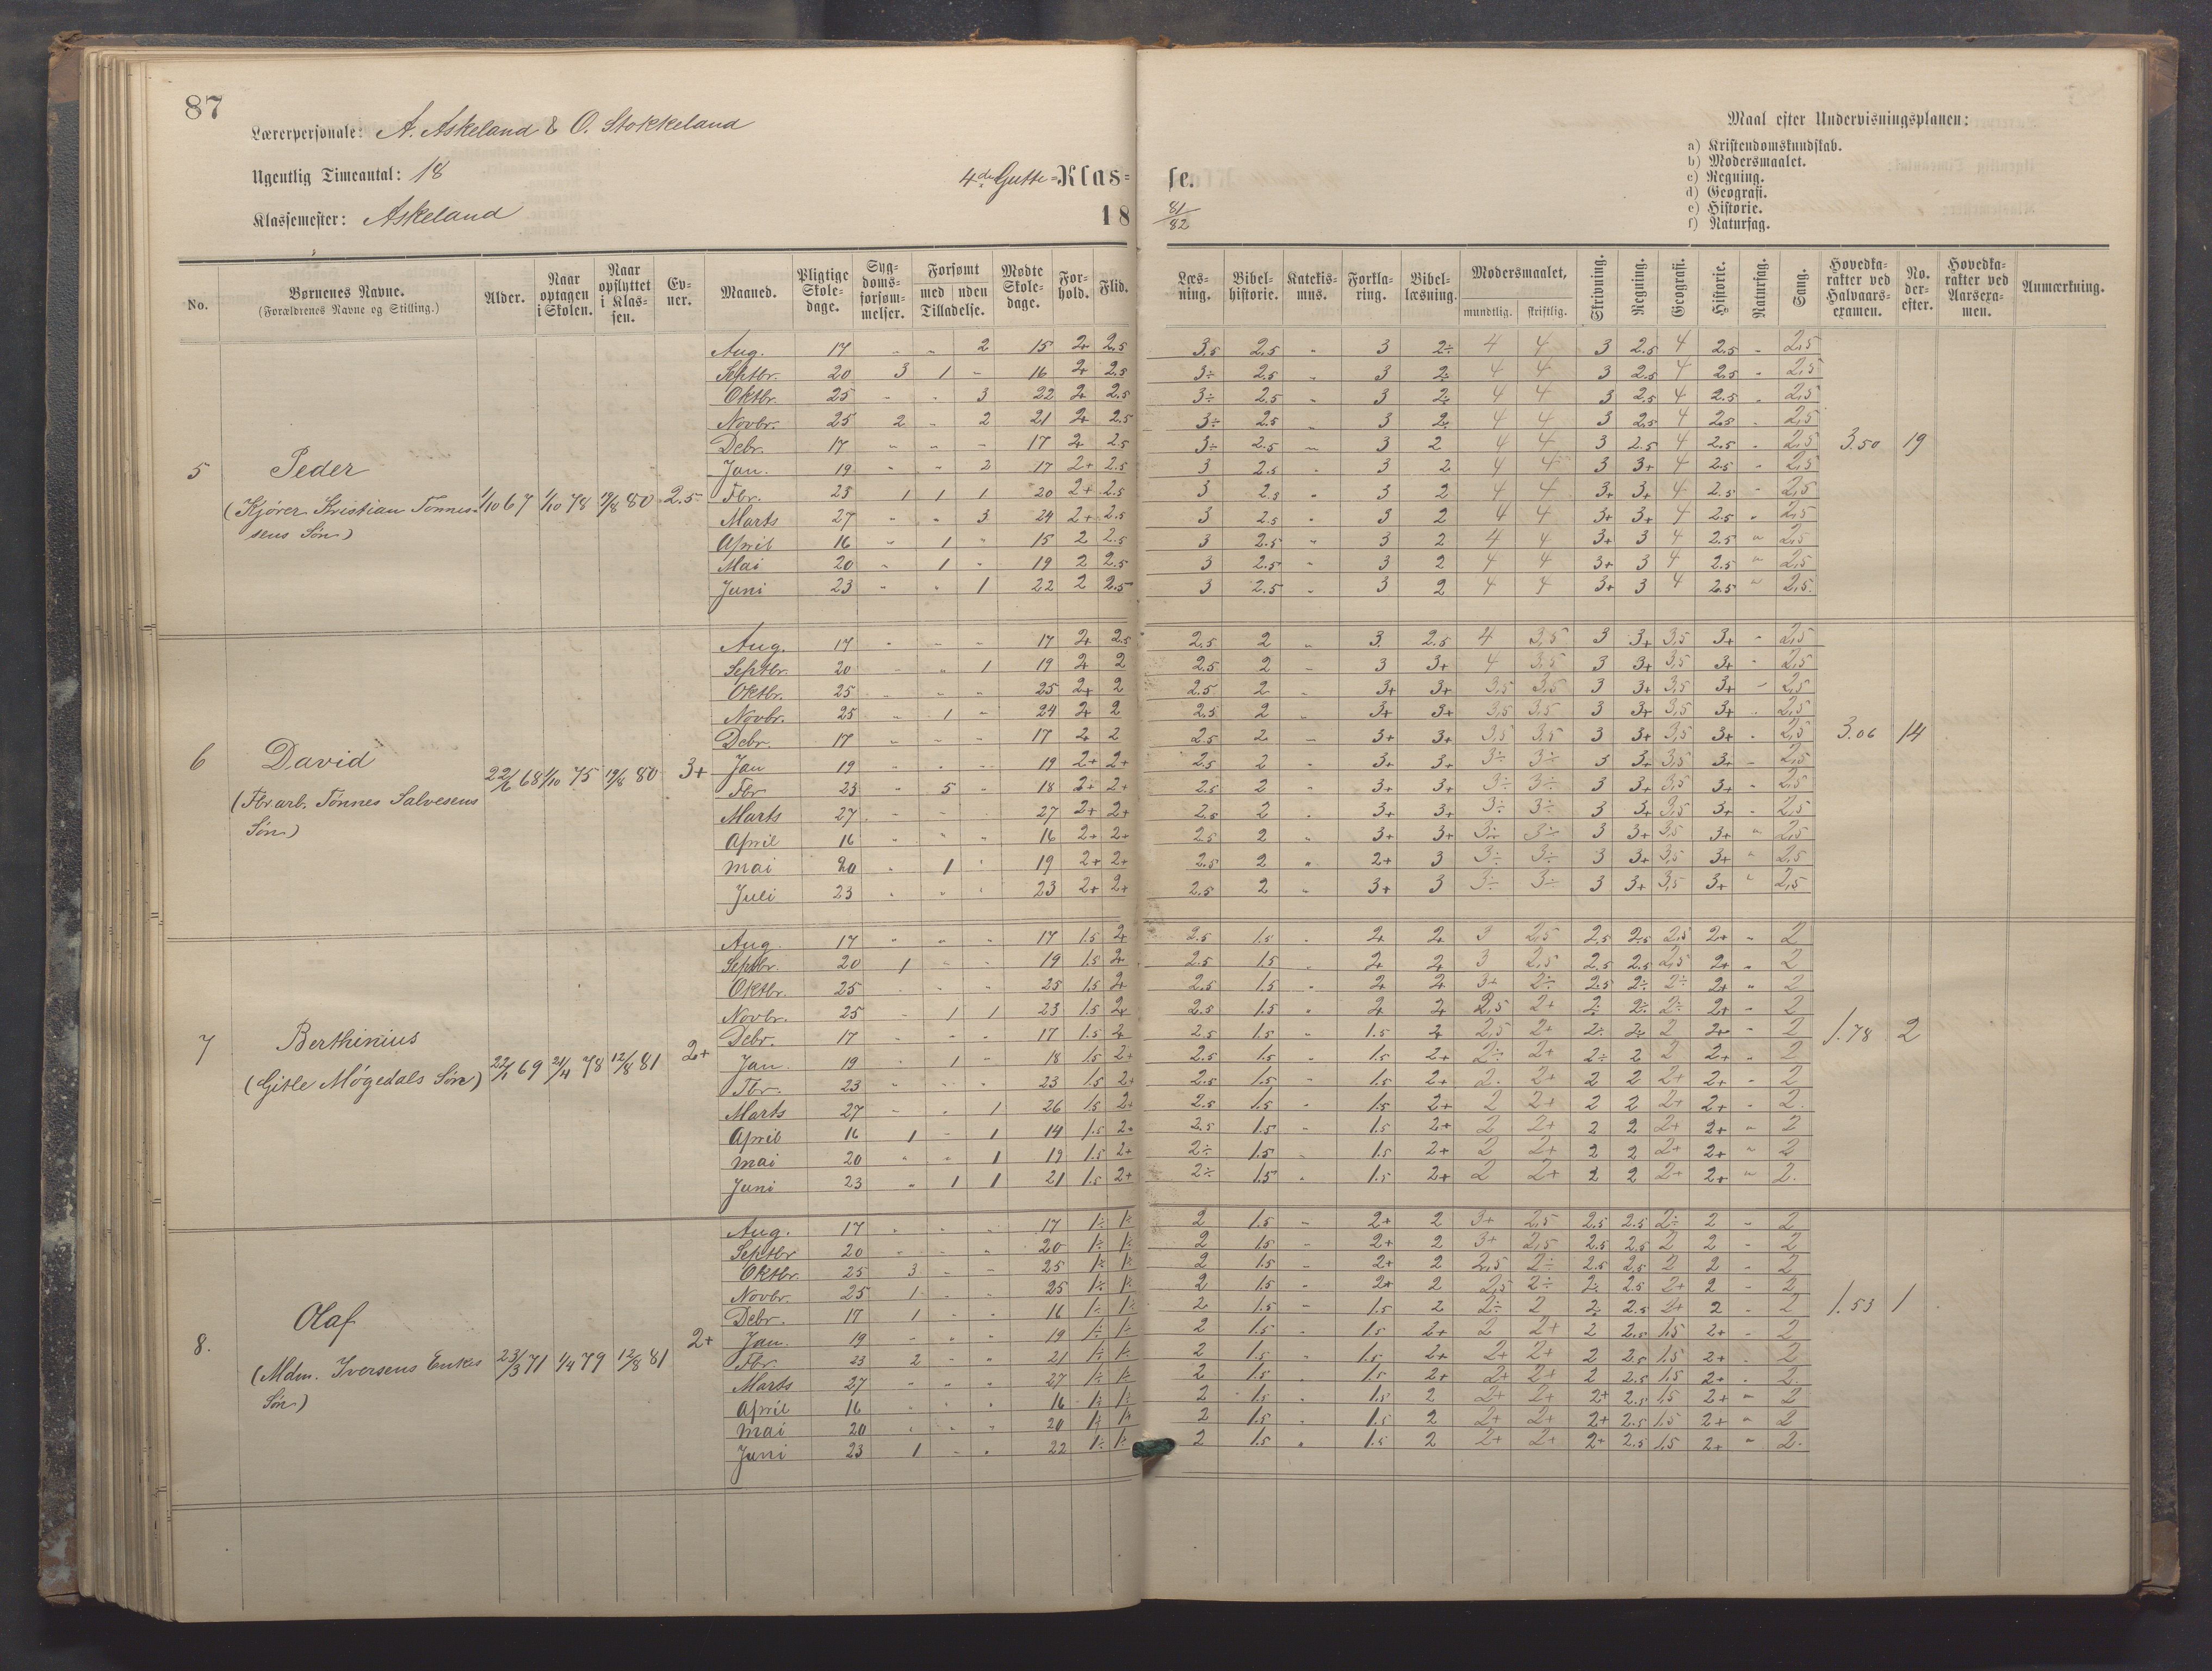 87
Lærerpersonale: A. Askeland & O. Stokkeland
Ugentlig Timeantal: 18
Klassemester: Askeland
4de Gutte=Klas=se.
18 81/82
Maal efter Undervisningsplanen:
a) Kristendomskundskab.
b) Modersmaalet.
c) Regning.
d) Geografi.
e) Historie.
f) Naturfag.
No. | Børnenes Navne. (Forældrenes Navne og Stilling.) | Alder. | Naar optagen i Skolen. | Naar opflyttet i Klassen. | Evner. | Maaned. | Pligtige Skoledage. | Sygdomsforsømmelser. | Forsømt med Tilladelse. | uden | Mødte Skoledage. | Forhold. | Flid. | Læsning. | Bibelhistorie. | Katekismus. | Forklaring. | Bibellæsning. | Modersmaalet, mundtlig. | skriftlig. | Skrivning. | Regning. | Geografi. | Historie. | Naturfag. | Sang. | Hovedkarakter ved Halvaarsexamen. | No. derefter. | Hovedkarakter ved Aarsexamen. | Anmærkning.
5 Peder
(Kjører Kristian Tønnessens Søn)
1/10 67 1/10 78 19/8 80 2.5
Aug. 17 " " 2 15 2+ 2.5 3.5 2.5 " 3 2÷ 4 4 3 2.5 4 2.5 " 2,5
Septbr. 20 3 1 " 16 2+ 2.5 3÷ 2.5 " 3 2÷ 4 4 3 2.5 4 2.5 " 2,5
Oktbr. 25 " " 3 22 2+ 2.5 3÷ 2.5 " 3 2÷ 4 4 3 2.5 4 2.5 " 2,5
Novbr. 25 2 " 2 21 2+ 2.5 3÷ 2.5 " 3 2÷ 4 4 3 2.5 4 2.5 " 2,5
Debr. 17 " " " 17 2+ 2.5 3÷ 2.5 " 3 2 4 4 3 2.5 4 2.5 " 2,5 3.50 19
Jan. 19 " " 2 17 2+ 2.5 3 2.5 " 3 2 4 4 3 3+ 4 2.5 " 2,5
Fbr. 23 1 1 1 20 2+ 2.5 3 2.5 " 3 2 4 4 3+ 3+ 4 2.5 " 2,5
Marts 27 " " 3 24 2+ 2.5 3 2.5 " 3 2 4 4 3+ 3+ 4 2.5 " 2,5
April 16 " 1 " 15 2 2.5 3 2.5 " 3 2 4 4 3+ 3 4 2.5 " 2,5
Mai 20 " 1 " 19 2 2.5 3 2.5 " 3 2 4 4 3+ 3 4 2.5 " 2,5
Juni 23 " " 1 22 2 2.5 3 2.5 " 3 2 4 4 3+ 3 4 2.5 " 2,5.
6 David
(Fbrarb. Tønnes Salvesens Søn)
22/6 68 1/10 75 19/8 80 3+
Aug. 17 " " " 17 2+ 2.5 2.5 2 " 3. 2.5 4 3,5 3 3+ 3,5 3+ " 2,5
Septbr. 20 " " 1 19 2+ 2 2.5 2 " 3 3+ 4 3,5 3 3+ 3,5 3+ " 2,5
Oktbr. 25 " " " 25 2+ 2 2.5 2 " 3+ 3+ 3,5 3,5 3 3+ 3,5 3+ " 2,5
Novbr. 25 " 1 " 24 2+ 2 2.5 2 " 3+ 3+ 3,5 3,5 3 3+ 3,5 3+ " 2,5
Debr. 17 " " " 17 2+ 2 2.5 2 " 3+ 3+ 3,5 3,5 3 3+ 3,5 3+ " 2,5 3.06 14
Jan 19 " " " 19 2+ 2+ 2.5 2 " 3+ 3+ 3÷ 3÷ 3 3+ 3,5 3+ " 2,5
Fbr 23 " 5 " 18 2+ 2+ 2.5 2 " 3+ 3+ 3÷ 3÷ 3 3+ 3,5 3+ " 2,5
Marts 27 " " " 27 2+ 2+ 2.5 2 " 3+ 3+ 3÷ 3÷ 3 3+ 3,5 3+ " 2.5
April 16 " " " 16 2+ 2+ 2.5 2 " 3+ 3+ 3÷ 3÷ 3 3+ 3,5 3+ " 2,5
Mai 20 " 1 " 19 2+ 2+ 2.5 2 " 2+ 3 3÷ 3÷ 3 3+ 3,5 3+ " 2,5
Juli 23 " " " 23 2+ 2+ 2.5 2 " 3+ 3 3÷ 3÷ 3 3+ 3,5 3+ " 2,5
7 Berthinius
(Gitle Møgedals Søn)
22/1 69 21/4 78 12/8 81 2+
Aug. 17 " " " 17 1.5 2+ 2.5 1.5 " 2+ 2+ 3 2,5 2.5 2.5 2,5 2+ " 2
Septbr. 20 1 " " 19 1.5 2+ 2.5 1.5 " 2+ 2+ 3 2,5 2.5 2.5 2,5 2+ " 2
Oktbr. 25 " " " 25 1.5 2+ 2.5 1.5 " 2+ 2+ 3+ 2÷ 2.5 2÷ 2÷ 2+ " 2
Novbr. 25 " 1 1 23 1.5 2+ 2.5 1.5 " 2+ 2+ 2,5 2+ 2÷ 2÷ 2÷ 2+ " 2
Debr. 17 " " " 17 1.5 2+ 2.5 1.5 " 1.5 2+ 2,5 2+ 2÷ 2÷ 2 2+ " 2 1.78 2
Jan. 19 " 1 " 18 1.5 2+ 2.5 1.5 " 1.5 2+ 2÷ 2+ 2÷ 2 2 2+ " 2
Fbr. 23 " " " 23 1.5 2+ 2.5 1.5 " 1.5 2+ 2. 2+ 2 2 2+ 2+ " 2
Marts 27 " " 1 26 1.5 2+ 2.5 1.5 " 1.5 2+ 2 2+ 2 2 2+ 2+ " 2.
April 16 1 " 1 14 1.5 2+ 2.5 1.5 " 1.5 2+ 2 2+ 2 2 2+ 2+ " 2
Mai 20 " " 1 19 1.5 2+ 2÷ 1.5 " 1.5 2+ 2 2+ 2 2 2+ 2+ " 2
Juni 23 " 1 1 21 1.5 2+ 2÷ 1.5 " 1.5 2+ 2 2+ 2 2 2+ 2+ " 2.
8. Olaf
(Mdm. Iversens Enkes Søn)
23/3 71 1/4 79 12/8 81 2+
Aug. 17 " " " 17 1÷ 1÷ 2 1.5 " 2+ 2 3+ 2,5 2.5 2.5 2÷ 2 " 2
Septbr 20 " " " 20 1÷ 1÷ 2 1.5 " 2+ 2 3+ 2,5 2.5 2.5 2 2 " 2
Oktbr. 25 3 " " 25 1÷ 1÷ 2 1.5 " 2+ 2 2,5 2÷ 2.5 2.5 2 2 " 2
Novbr. 25 1 " " 25 1÷ 1÷ 2 1.5 " 2+ 2 2,5 2÷ 2÷ 2.5 2+ 2 " 2
Debr. 17 1 " " 16 1÷ 1÷ 2 1.5 " 1.5 2 2÷ 2 2÷ 2.5 2+ 2 " 2 1.53 1
Jan. 19 " " " 19 1÷ 1÷ 2 1.5 " 1.5 2+ 2 2+ 2 2.5 1,5 2+ " 2
Fbr. 23 2 " " 21 1÷ 1÷ 2 1.5 " 1.5 2+ 2+ 2+ 2 2.5 1.5 2+ " 2
Marts 27 " " " 27 1÷ 1÷ 2 1.5 " 1.5 2+ 2+ 2+ 2 2.5 1,5 2+ " 2.
April 16 " " " 16 1÷ 1÷ 2 1.5 " 1.5 2 2+ 2+ 2+ 2.5 1,5 2+ " 2
Mai 20 " " " 20 1÷ 1÷ 2 1.5 " 1.5 2 2+ 2+ 2+ 2.5 1,5 2+ " 2
Juni 23 1 " " 22 1÷ 1÷ 2 1.5 " 1.5 2 2+ 2+ 2+ 2.5 1,5 2+ " 2.